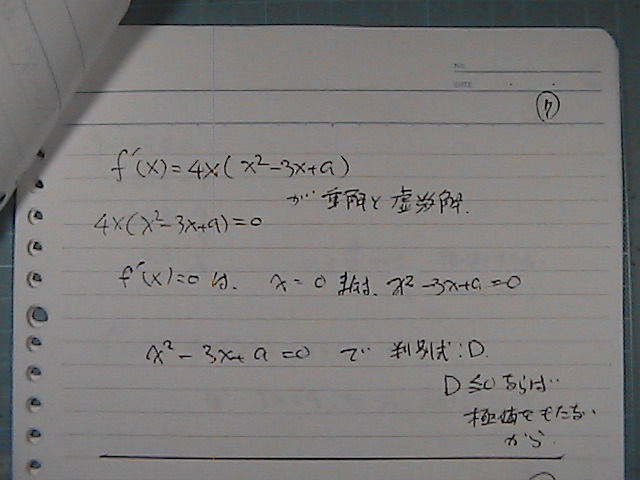 NO.
DATE
④
f'(x)=4x(x²-3x+a)
が 重解と虚数解.
4x(x²-3x+a)=0
f'(x)=0 は. x=0 または. x²-3x+a=0
x²-3x+a=0 で 判別式:D.
D≤0ならば..
極値をもたない
から.